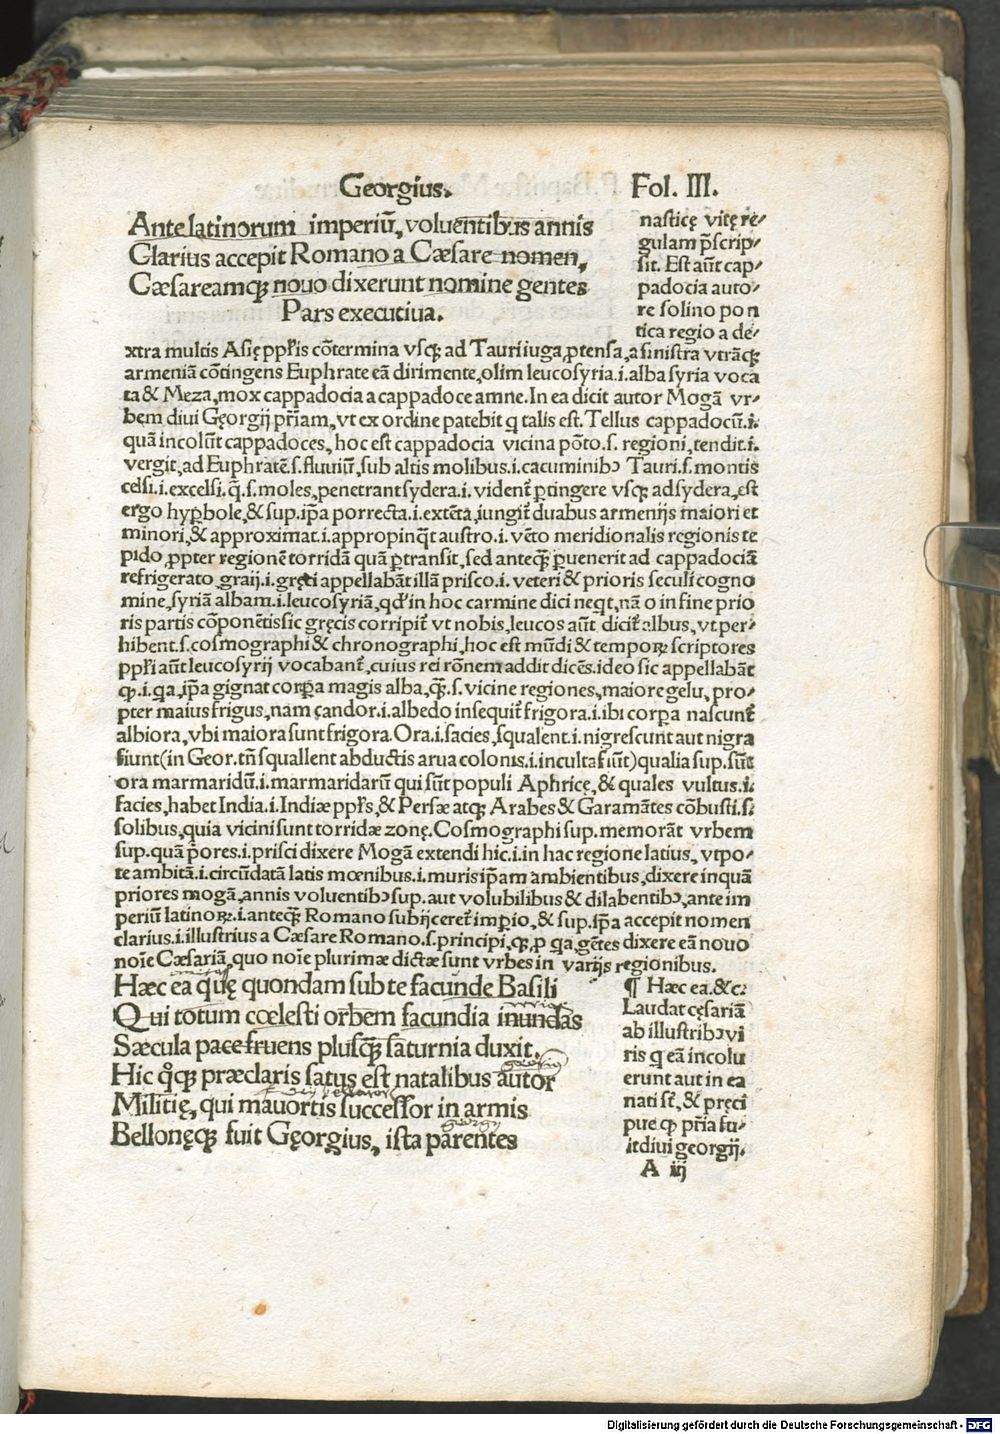 Georgius. Fol. III.
Ante latinorum imperiū, voluentibus annis
Clarius accepit Romano a Cæsare nomen,
Cæsareamqꝫ nouo dixerunt nomine gentes
Pars executiua.
nasticę vitę re⸗
gulam p̄scrip⸗
sit. Est aūt cap⸗
padocia auto⸗
re solino pon
tica regio a de⸗
xtra multis Asię pp̄lis cōtermina vsqꝫ ad Tauri iuga, ꝓtensa, a sinistra vtrāqꝫ
armeniā cōtingens Euphrate eā dirimente, olim leucosyria .i. alba syria voca
ta & Meza, mox cappadocia a cappadoce amne. In ea dicit autor Mogā vr⸗
bem diui Gęorgij pr̄iam, vt ex ordine patebit q talis est. Tellus cappadocū .i.
quā incolūt cappadoces, hoc est cappadocia vicina pōto .s. regioni, tendit .i.
vergit, ad Euphratē .s. fluuiū, sub altis molibus .i. cacuminibꝰ Tauri .s. montis
celsi .i. excelsi. q̄ .s. moles, penetrant sydera .i. vident̄ ꝑtingere vsqꝫ ad sydera, est
ergo hyꝑbole, & sup. ip̄a porrecta .i. extēta, iungit̄ duabus armenijs maiori et
minori, & approximat .i. appropinq̄t austro .i. vēto meridionalis regionis te
pido, ꝓpter regionē torridā quā ꝑtransit, sed anteqꝫ̄ ꝑuenerit ad cappadociā
refrigerato, graij .i. gręci appellabāt illā prisco .i. veteri & prioris seculi cogno
mine, syriā albam .i. leucosyriā, qd' in hoc carmine dici neqt, nā o in fine prio
ris partis cōponētis sic gręcis corripit̄ vt nobis, leucos aūt dicit̄ albus, vt per⸗
hibent .s. cosmographi & chronographi, hoc est mūdi & tempoꝝ scriptores
pp̄li aūt leucosyrij vocabant̄, cuius rei rōnem addit dicēs, ideo sic appellabāt̄
qꝫ .i. qa, ip̄a gignat corꝑa magis alba, qꝫ̄ .s. vicine regiones, maiore gelu, pro⸗
pter maius frigus, nam candor .i. albedo insequit̄ frigora .i. ibi corꝑa nascunt̄
albiora, vbi maiora sunt frigora. Ora .i. facies, squalent .i. nigrescunt aut nigra
fiunt (in Geor. tn̄ squallent abductis arua colonis .i. inculta fiūt) qualia sup. sūt
ora marmaridū .i. marmaridarū qui sūt populi Aphricę, & quales vultus .i.
facies, habet India .i. Indiæ pp̄ls, & Persæ atqꝫ Arabes & Garamātes cōbusti .s.
solibus, quia vicini sunt torridæ zonę. Cosmographi sup. memorāt vrbem
sup. quā p̄ores .i. prisci dixere Mogā extendi hic .i. in hac regione latius, vtpo⸗
te ambitā .i. circūdatā latis mœnibus .i. muris ip̄am ambientibus, dixere inquā
priores mogā, annis voluentibꝰ sup. aut volubilibus & dilabentibꝰ, ante im
periū latinoꝝ .i. anteqꝫ̄ Romano subijceret̄ imꝑio, & sup. ip̄a accepit nomen
clarius .i. illustrius a Cæsare Romano .s. principi, qꝫ, ꝓ qa, gētes dixere eā nouo
noīe Cæsariā, quo noīe plurimæ dictæ sunt vrbes in varijs regionibus.
Hæc ea quę quondam sub te facunde Basili
Qui totum cœlesti orbem facundia inundas
Sæcula pace fruens plusqꝫ̄ saturnia duxit.
Hic qͦqꝫ præclaris satus est natalibus autor
Militię, qui mauortis successor in armis
Bellonęqꝫ fuit Gęorgius, ista parentes
¶ Hæc ea. &c.
Laudat cęsariā
ab illustribꝰ vi
ris q eā incolu
erunt aut in ea
nati st̄, & pręci
pue qꝫ pr̄ia fu⸗
it diui georgij.
A iij
Digitalisierung gefördert durch die Deutsche Forschungsgemeinschaft - DFG